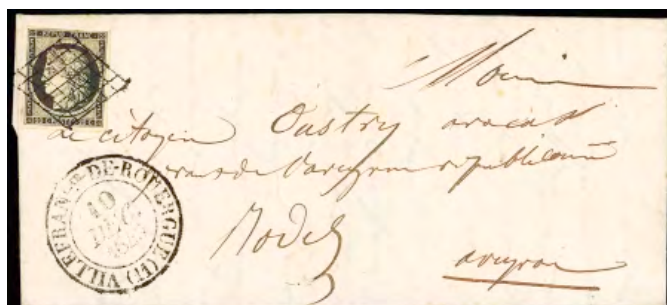 REPUB FRANC
20 C POSTES 20 C
le citoyen Oustry avocat
de l'aveyron républicain
Rodez
aveyron
VILLEFRANCHE-DE-ROUERGUE (11)
10
DEC.